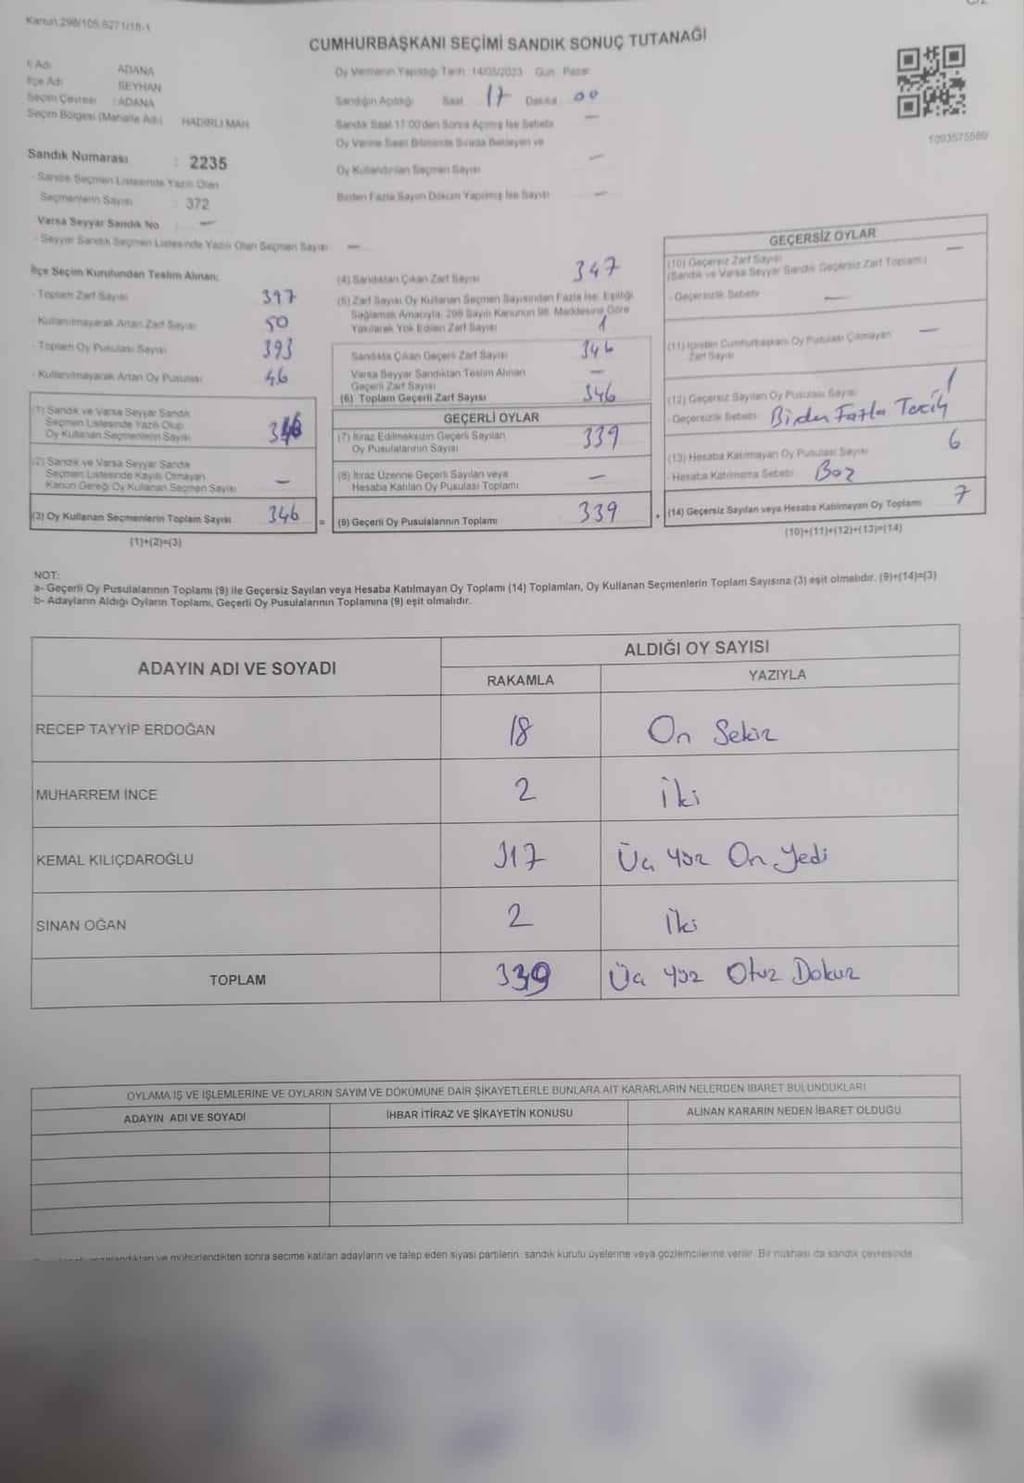 Kanun:298/105,6271/18-1
CUMHURBAŞKANI SEÇİMİ SANDIK SONUÇ TUTANAĞI
İl Adı ADANA
İlçe Adı SEYHAN
Seçim Çevresi : ADANA
Seçim Bölgesi (Mahalle Adı) HADIRLI MAH
Sandık Numarası : 2235
- Sandık Seçmen Listesinde Yazılı Olan
Seçmenlerin Sayısı : 372
Varsa Seyyar Sandık No —
- Seyyar Sandık Seçmen Listesinde Yazılı Olan Seçmen Sayısı —
Oy Vermenin Yapıldığı Tarih : 14/05/2023 Gün : Pazar
Sandığın Açıldığı Saat 17 Dakika 00
Sandık Saat 17:00'den Sonra Açılmış İse Sebebi —
Oy Verme Saati Bitiminde Sırada Bekleyen ve
Oy Kullandırılan Seçmen Sayısı —
Birden Fazla Sayım Döküm Yapılmış İse Sayısı —
İlçe Seçim Kurulundan Teslim Alınan;
- Toplam Zarf Sayısı 397
- Kullanılmayarak Artan Zarf Sayısı 50
- Toplam Oy Pusulası Sayısı 393
- Kullanılmayarak Artan Oy Pusulası 46
(1) Sandık ve Varsa Seyyar Sandık
Seçmen Listesinde Yazılı Olup
Oy Kullanan Seçmenlerin Sayısı 346
(2) Sandık ve Varsa Seyyar Sandık
Seçmen Listesinde Kayıtlı Olmayan
Kanun Gereği Oy Kullanan Seçmen Sayısı —
(3) Oy Kullanan Seçmenlerin Toplam Sayısı 346
(1)+(2)=(3)
(4) Sandıktan Çıkan Zarf Sayısı 347
(5) Zarf Sayısı Oy Kullanan Seçmen Sayısından Fazla İse; Eşitliği
Sağlamak Amacıyla, 298 Sayılı Kanunun 98. Maddesine Göre
Yakılarak Yok Edilen Zarf Sayısı 1
Sandıkta Çıkan Geçerli Zarf Sayısı 346
Varsa Seyyar Sandıktan Teslim Alınan
Geçerli Zarf Sayısı —
(6) Toplam Geçerli Zarf Sayısı 346
GEÇERLİ OYLAR
(7) İtiraz Edilmeksizin Geçerli Sayılan
Oy Pusulalarının Sayısı 339
(8) İtiraz Üzerine Geçerli Sayılan veya
Hesaba Katılan Oy Pusulası Toplamı —
= (9) Geçerli Oy Pusulalarının Toplamı 339
GEÇERSİZ OYLAR
(10) Geçersiz Zarf Sayısı —
(Sandık ve Varsa Seyyar Sandık Geçersiz Zarf Toplamı)
- Geçersizlik Sebebi —
(11) İçinden Cumhurbaşkanı Oy Pusulası Çıkmayan —
Zarf Sayısı
(12) Geçersiz Sayılan Oy Pusulası Sayısı 1
- Geçersizlik Sebebi Birden Fazla Tercih
(13) Hesaba Katılmayan Oy Pusulası Sayısı 6
- Hesaba Katılmama Sebebi Boş
+ (14) Geçersiz Sayılan veya Hesaba Katılmayan Oy Toplamı 7
(10)+(11)+(12)+(13)=(14)
NOT:
a- Geçerli Oy Pusulalarının Toplamı (9) ile Geçersiz Sayılan veya Hesaba Katılmayan Oy Toplamı (14) Toplamları, Oy Kullanan Seçmenlerin Toplam Sayısına (3) eşit olmalıdır. (9)+(14)=(3)
b- Adayların Aldığı Oyların Toplamı, Geçerli Oy Pusulalarının Toplamına (9) eşit olmalıdır.
ADAYIN ADI VE SOYADI
ALDIĞI OY SAYISI
RAKAMLA YAZIYLA
RECEP TAYYİP ERDOĞAN 18 On Sekiz
MUHARREM İNCE 2 iki
KEMAL KILIÇDAROĞLU 317 Üç yüz On Yedi
SİNAN OĞAN 2 İki
TOPLAM 339 Üç yüz Otuz Dokuz
OYLAMA İŞ VE İŞLEMLERİNE VE OYLARIN SAYIM VE DÖKÜMÜNE DAİR ŞİKAYETLERLE BUNLARA AİT KARARLARIN NELERDEN İBARET BULUNDUKLARI
ADAYIN ADI VE SOYADI İHBAR İTİRAZ VE ŞİKAYETİN KONUSU ALINAN KARARIN NEDEN İBARET OLDUĞU
ve mühürlendikten sonra seçime katılan adayların ve talep eden siyasi partilerin, sandık kurulu üyelerine veya gözlemcilerine verilir. Bir nüshası da sandık çevresinde